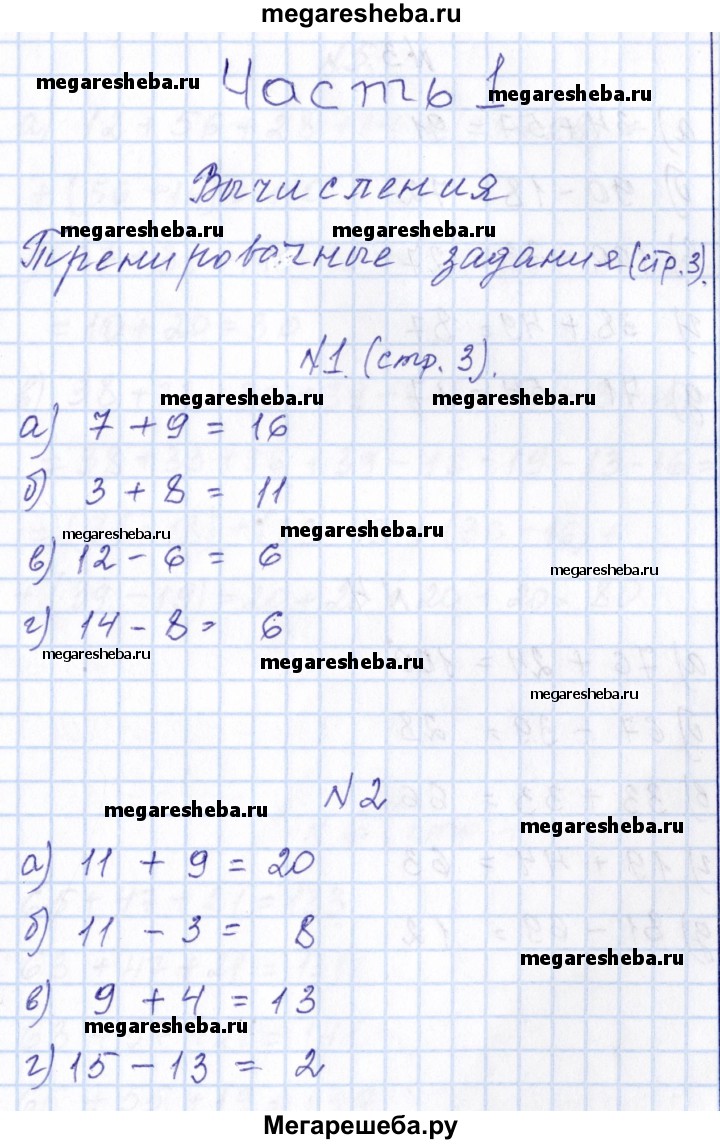 megaresheba.ru
Часть 1
megaresheba.ru megaresheba.ru
Вычисления
megaresheba.ru megaresheba.ru
Тренировочные задания (стр. 3).
№1. (стр. 3).
megaresheba.ru megaresheba.ru
а) 7 + 9 = 16
б) 3 + 8 = 11
megaresheba.ru megaresheba.ru
в) 12 - 6 = 6
megaresheba.ru
г) 14 - 8 = 6
megaresheba.ru megaresheba.ru
megaresheba.ru
№2
megaresheba.ru megaresheba.ru
а) 11 + 9 = 20
б) 11 - 3 = 8
megaresheba.ru
в) 9 + 4 = 13
megaresheba.ru
г) 15 - 13 = 2
Мегарешеба.ру